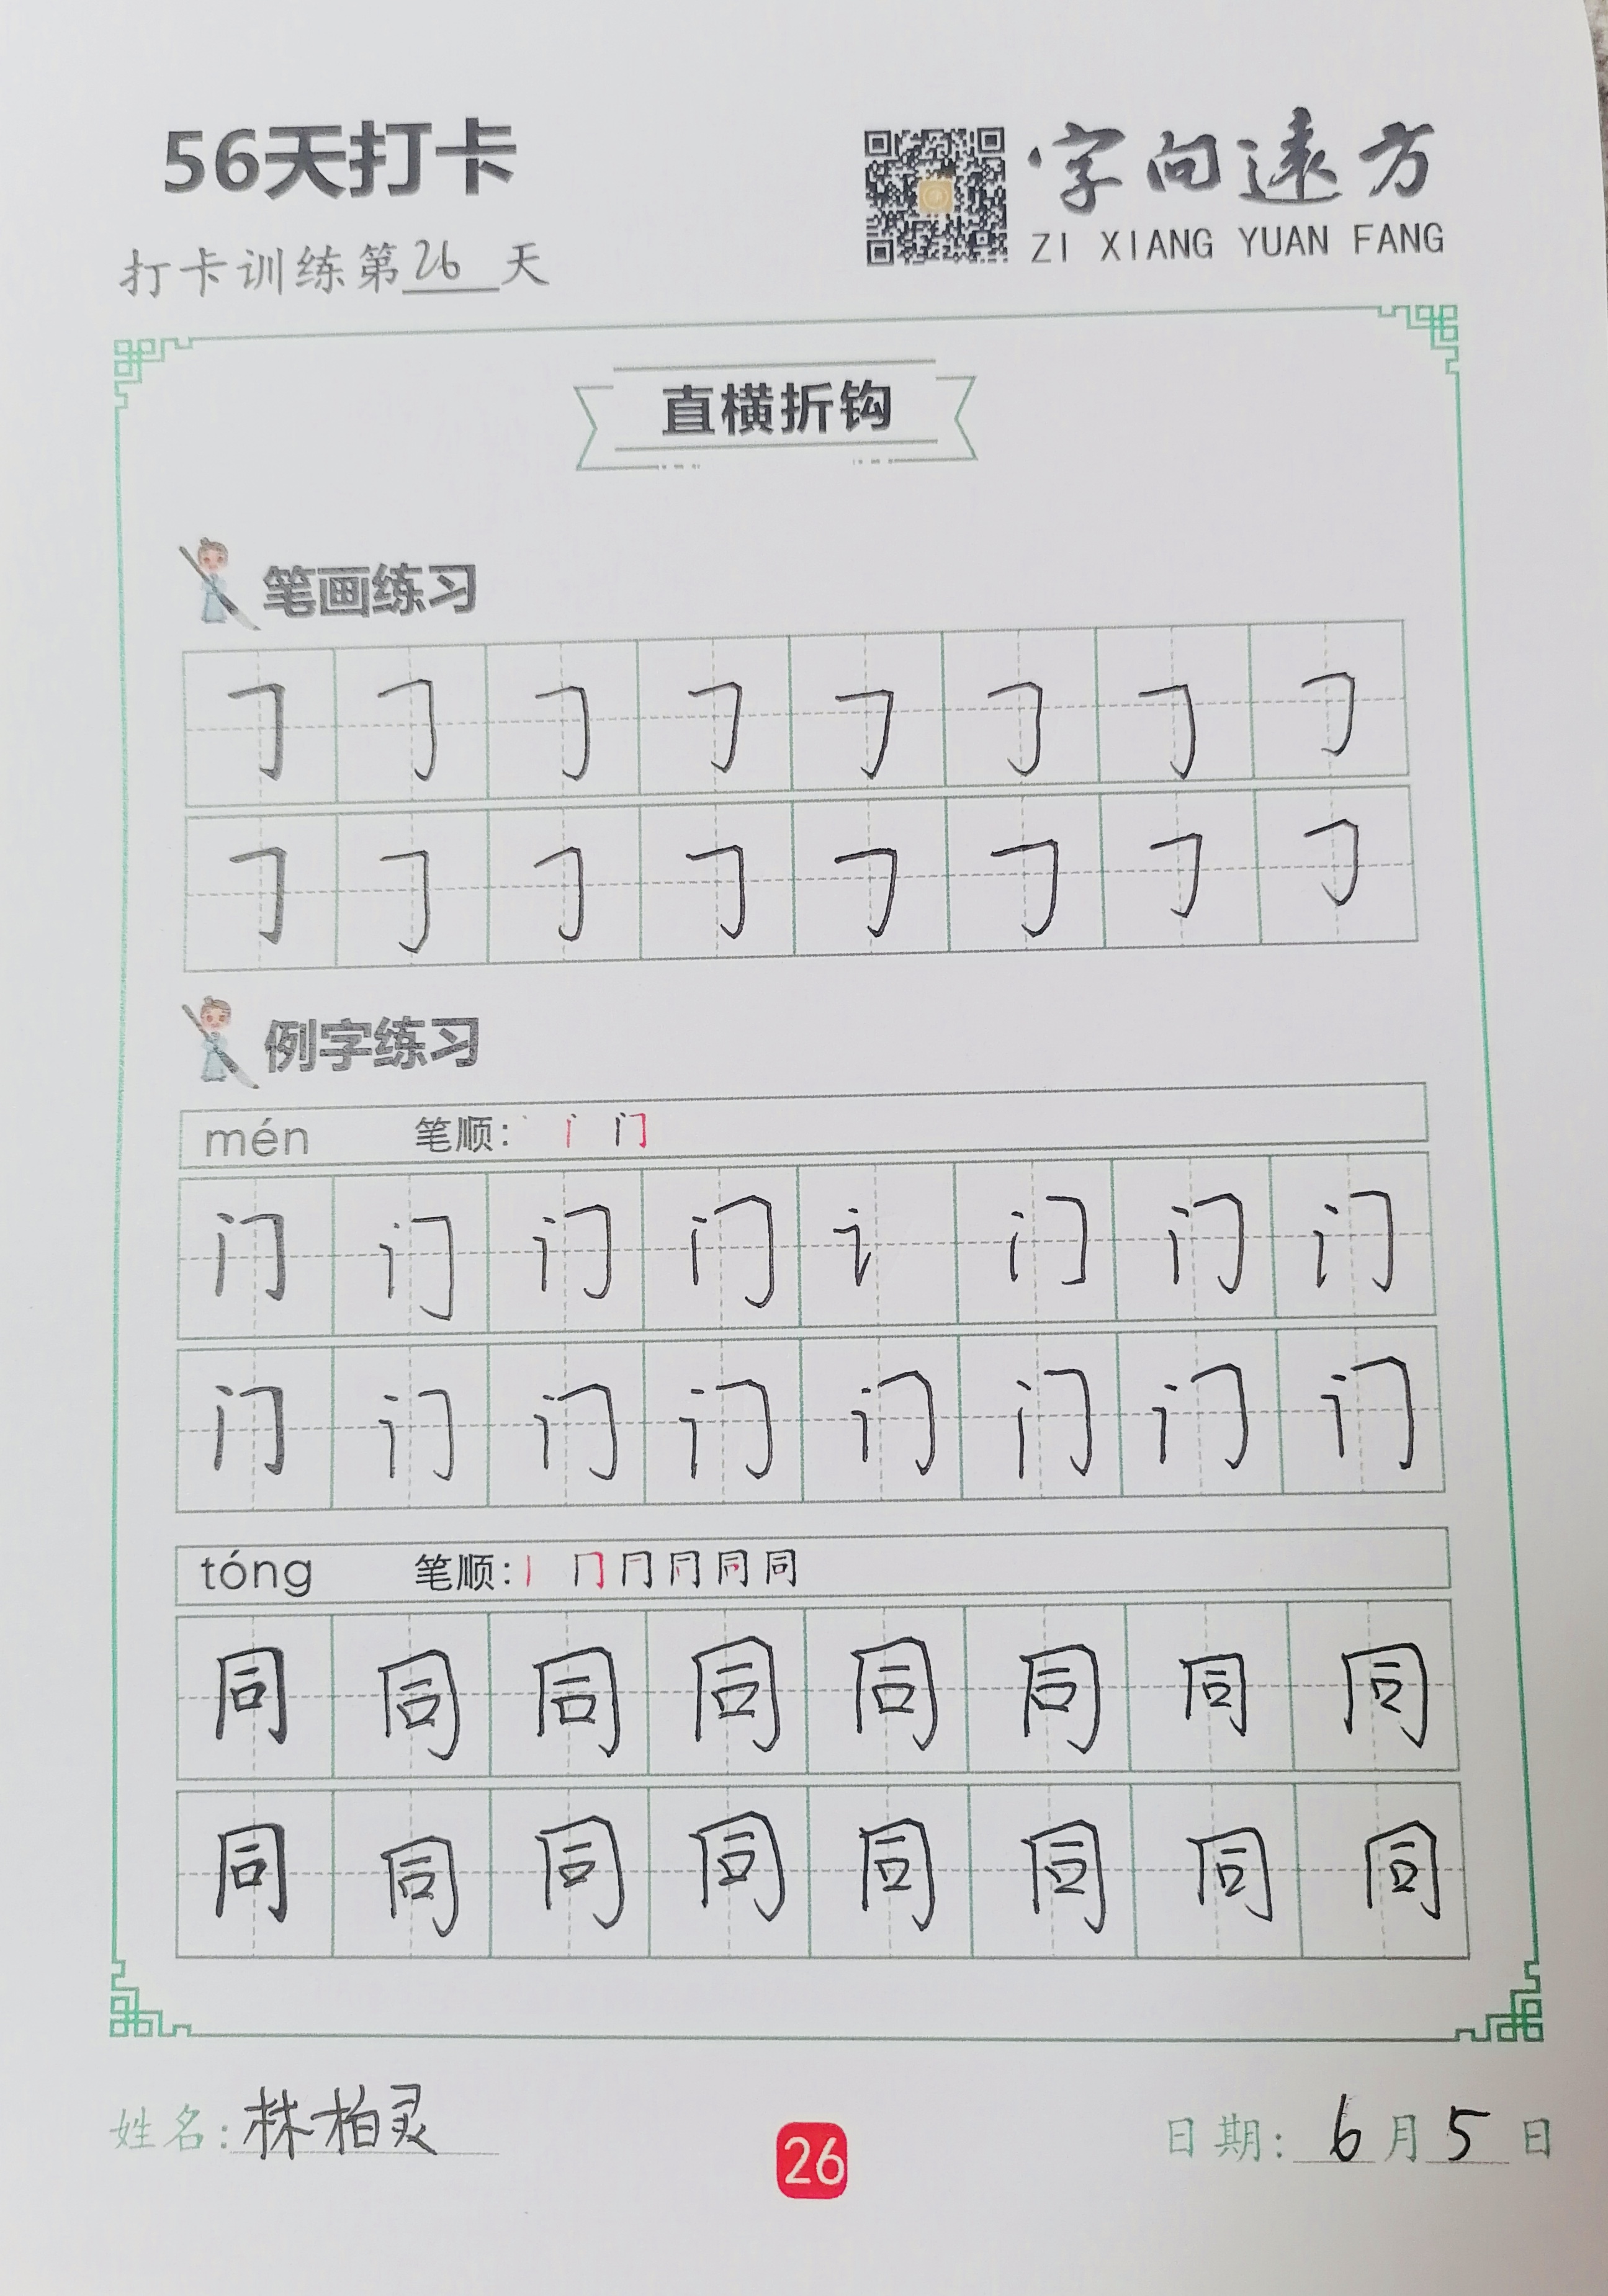 56天打卡
字向遠方
ZI XIANG YUAN FANG
打卡训练第26天
直横折钩
笔画练习
㇆ ㇆ ㇆ ㇆ ㇆ ㇆ ㇆ ㇆
㇆ ㇆ ㇆ ㇆ ㇆ ㇆ ㇆ ㇆
例字练习
mén 笔顺: 丶 门
门 门 门 门 讠 门 门 门
门 门 门 门 门 门 门 门
tóng 笔顺: 丨 冂 同 同
同 同 同 同 同 同 同 同
同 同 同 同 同 同 同 同
姓名: 林柏灵
26
日期: 6月5日